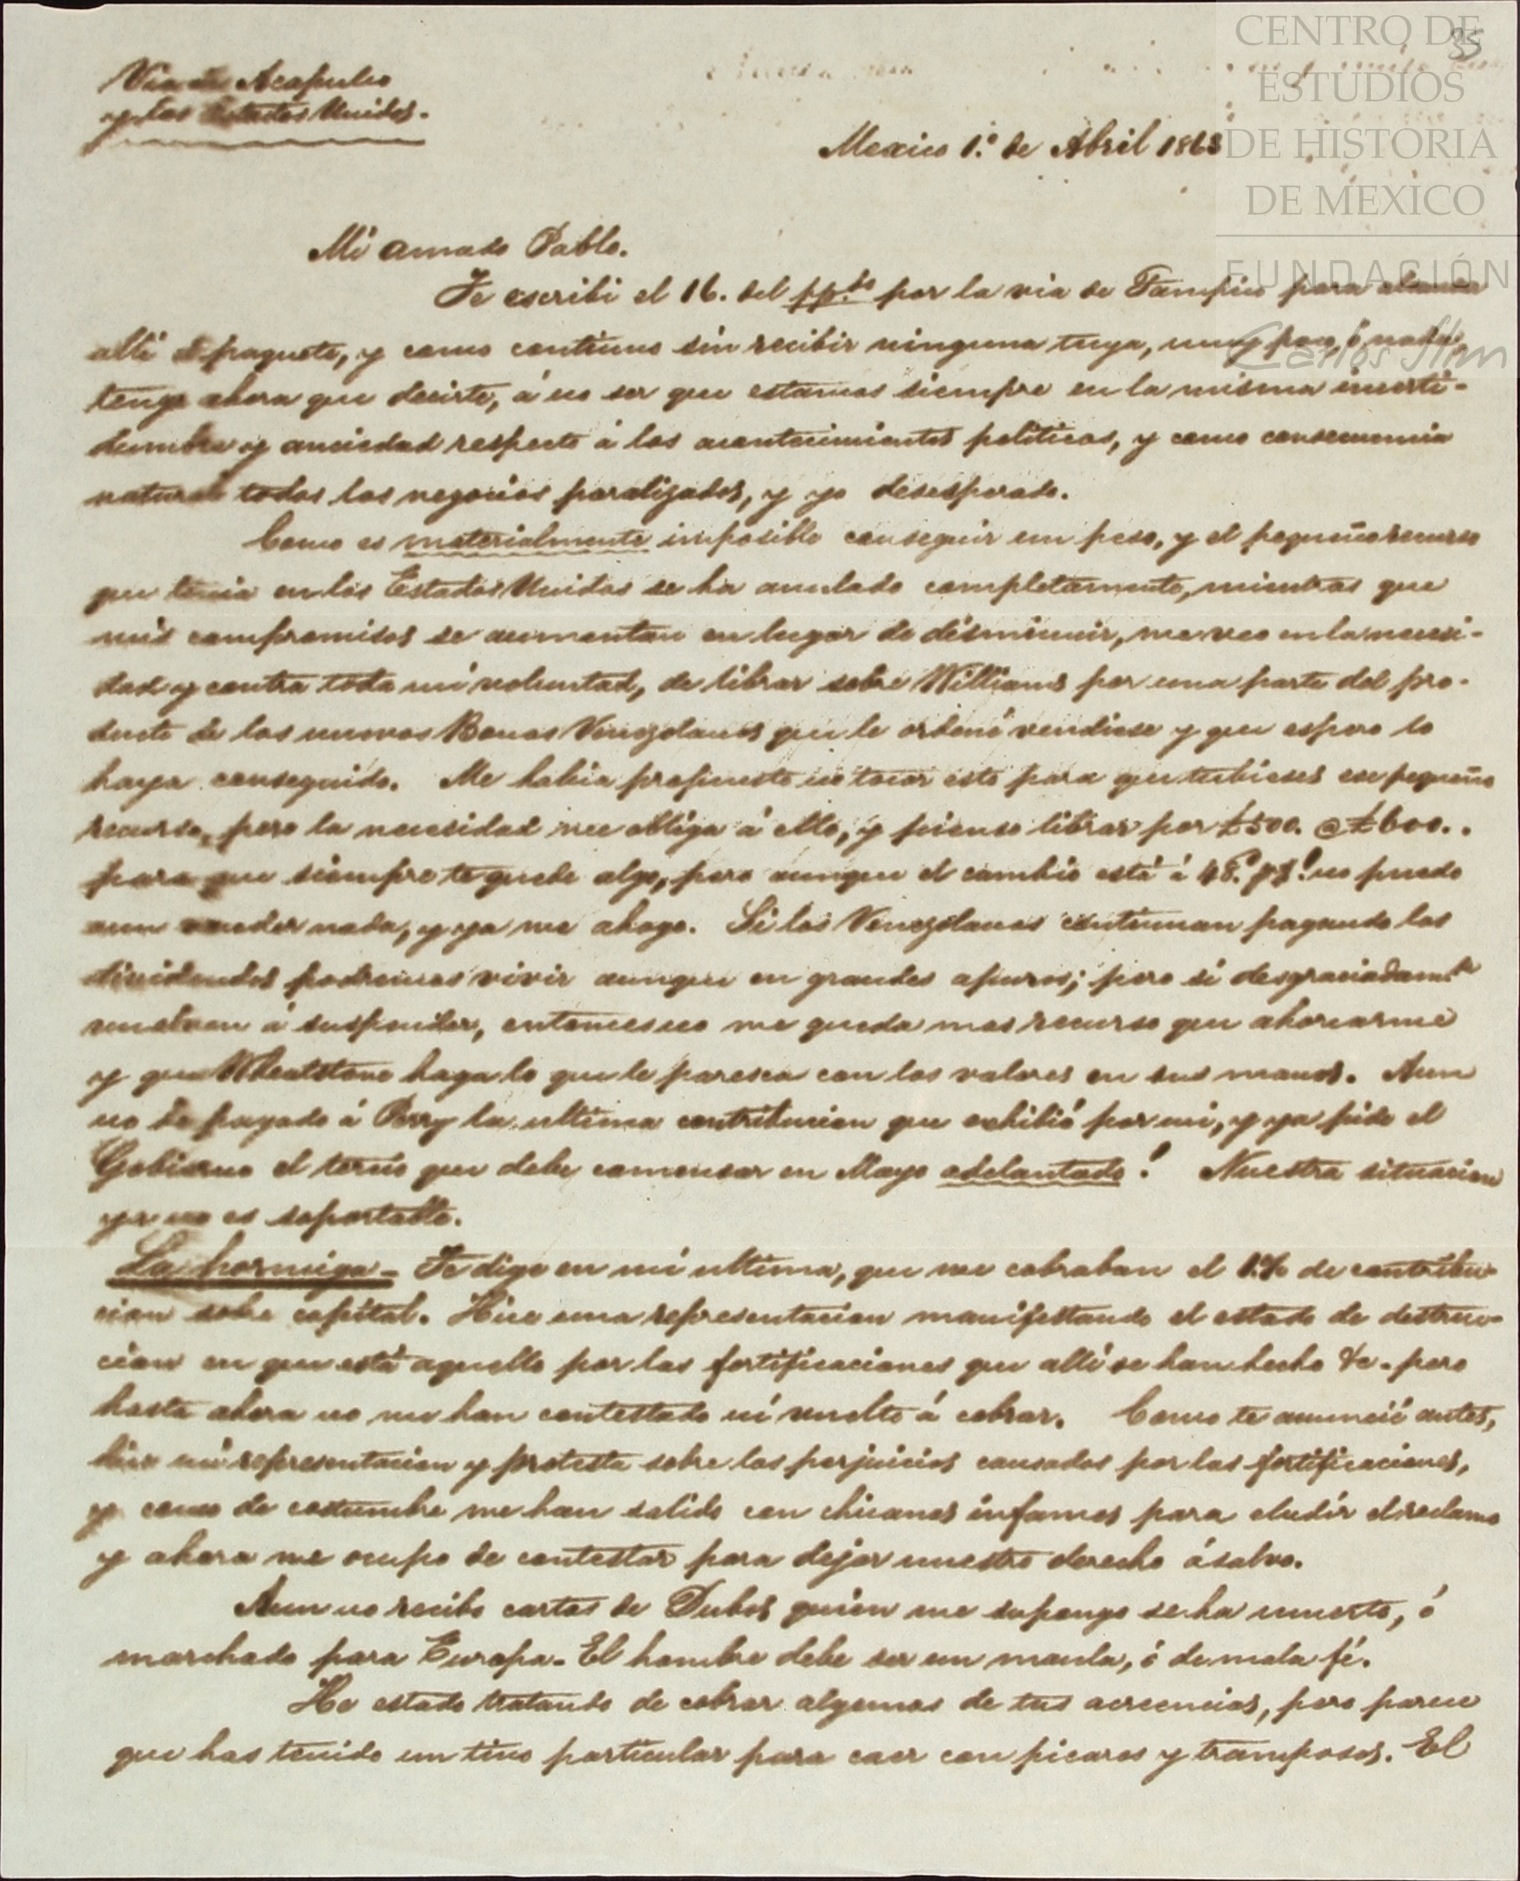 CENTRO DE
ESTUDIOS
DE HISTORIA
DE MEXICO
FUNDACIÓN
Carlos Slim
35
Via de Acapulco
y los Estados Unidos.
Mexico 1.º de Abril 1863
Mi amado Pablo.
Te escribi el 16. del pp.do por la via de Tampico para
alli el paquete, y como continuo sin recibir ninguna tuya, muy poco, ó nada
tengo ahora que decirte, á no ser que estamos siempre en la misma incerti-
dumbre y anciedad respecto á los acontecimientos politicos, y como consecuencia
natural todos los negocios paralizados, y yo desesperado.
Como es materialmente imposible conseguir un peso, y el pequeño recurso
que tenia en los Estados Unidos se ha anulado completamente, mientras que
mis compromisos se aumentan en lugar de disminuir, me veo en la necesi-
dad y contra toda mi voluntad, de librar sobre Williams por una parte del pro-
ducto de los nuevos Bonos Venezolanos que le ordené vendiese y que espero lo
haya conseguido. Me habia propuesto no tocar esto para que tubieses ese pequeño
recurso, pero la necesidad me obliga á ello, y pienso librar por £500. @ £600..
para que siempre te quede algo, pero aunque el cambio está á 48. no puedo
aun vender nada, y ya me ahogo. Si los Venezolanos continuan pagando los
dividendos podremos vivir aunque en grandes apuros; pero si desgraciadam.te
vuelven á suspender, entonces no me queda mas recurso que ahorcarme
y que Wheatstone haga lo que le paresca con los valores en sus manos. Aun
no he pagado á Perry la ultima contribucion que exhibió por mi, y ya pide el
Gobierno el tercio que debe comensar en Mayo adelantado! Nuestra situacion
ya no es soportable.
La hormiga - Te dige en mi ultima, que me cobraban el 1.% de contribu-
cion sobre capital. Hice una representacion manifestando el estado de destruc-
cion en que está aquello por las fortificaciones que alli se han hecho &c. pero
hasta ahora no me han contestado ni vuelto á cobrar. Como te anuncié antes,
hice mi representacion y protesta sobre los perjuicios causados por las fortificaciones,
y como de costumbre me han salido con chicanas infames para eludir el reclamo
y ahora me ocupo de contestar para dejar nuestro derecho á salvo.
Aun no recibo cartas de Dubos quien me supongo se ha muerto, ó
marchado para Europa. El hombre debe ser un maula, ó de mala fé.
He estado tratando de cobrar algunas de tus acreencias, pero parece
que has tenido un tino particular para caer con picaros y tramposos. El